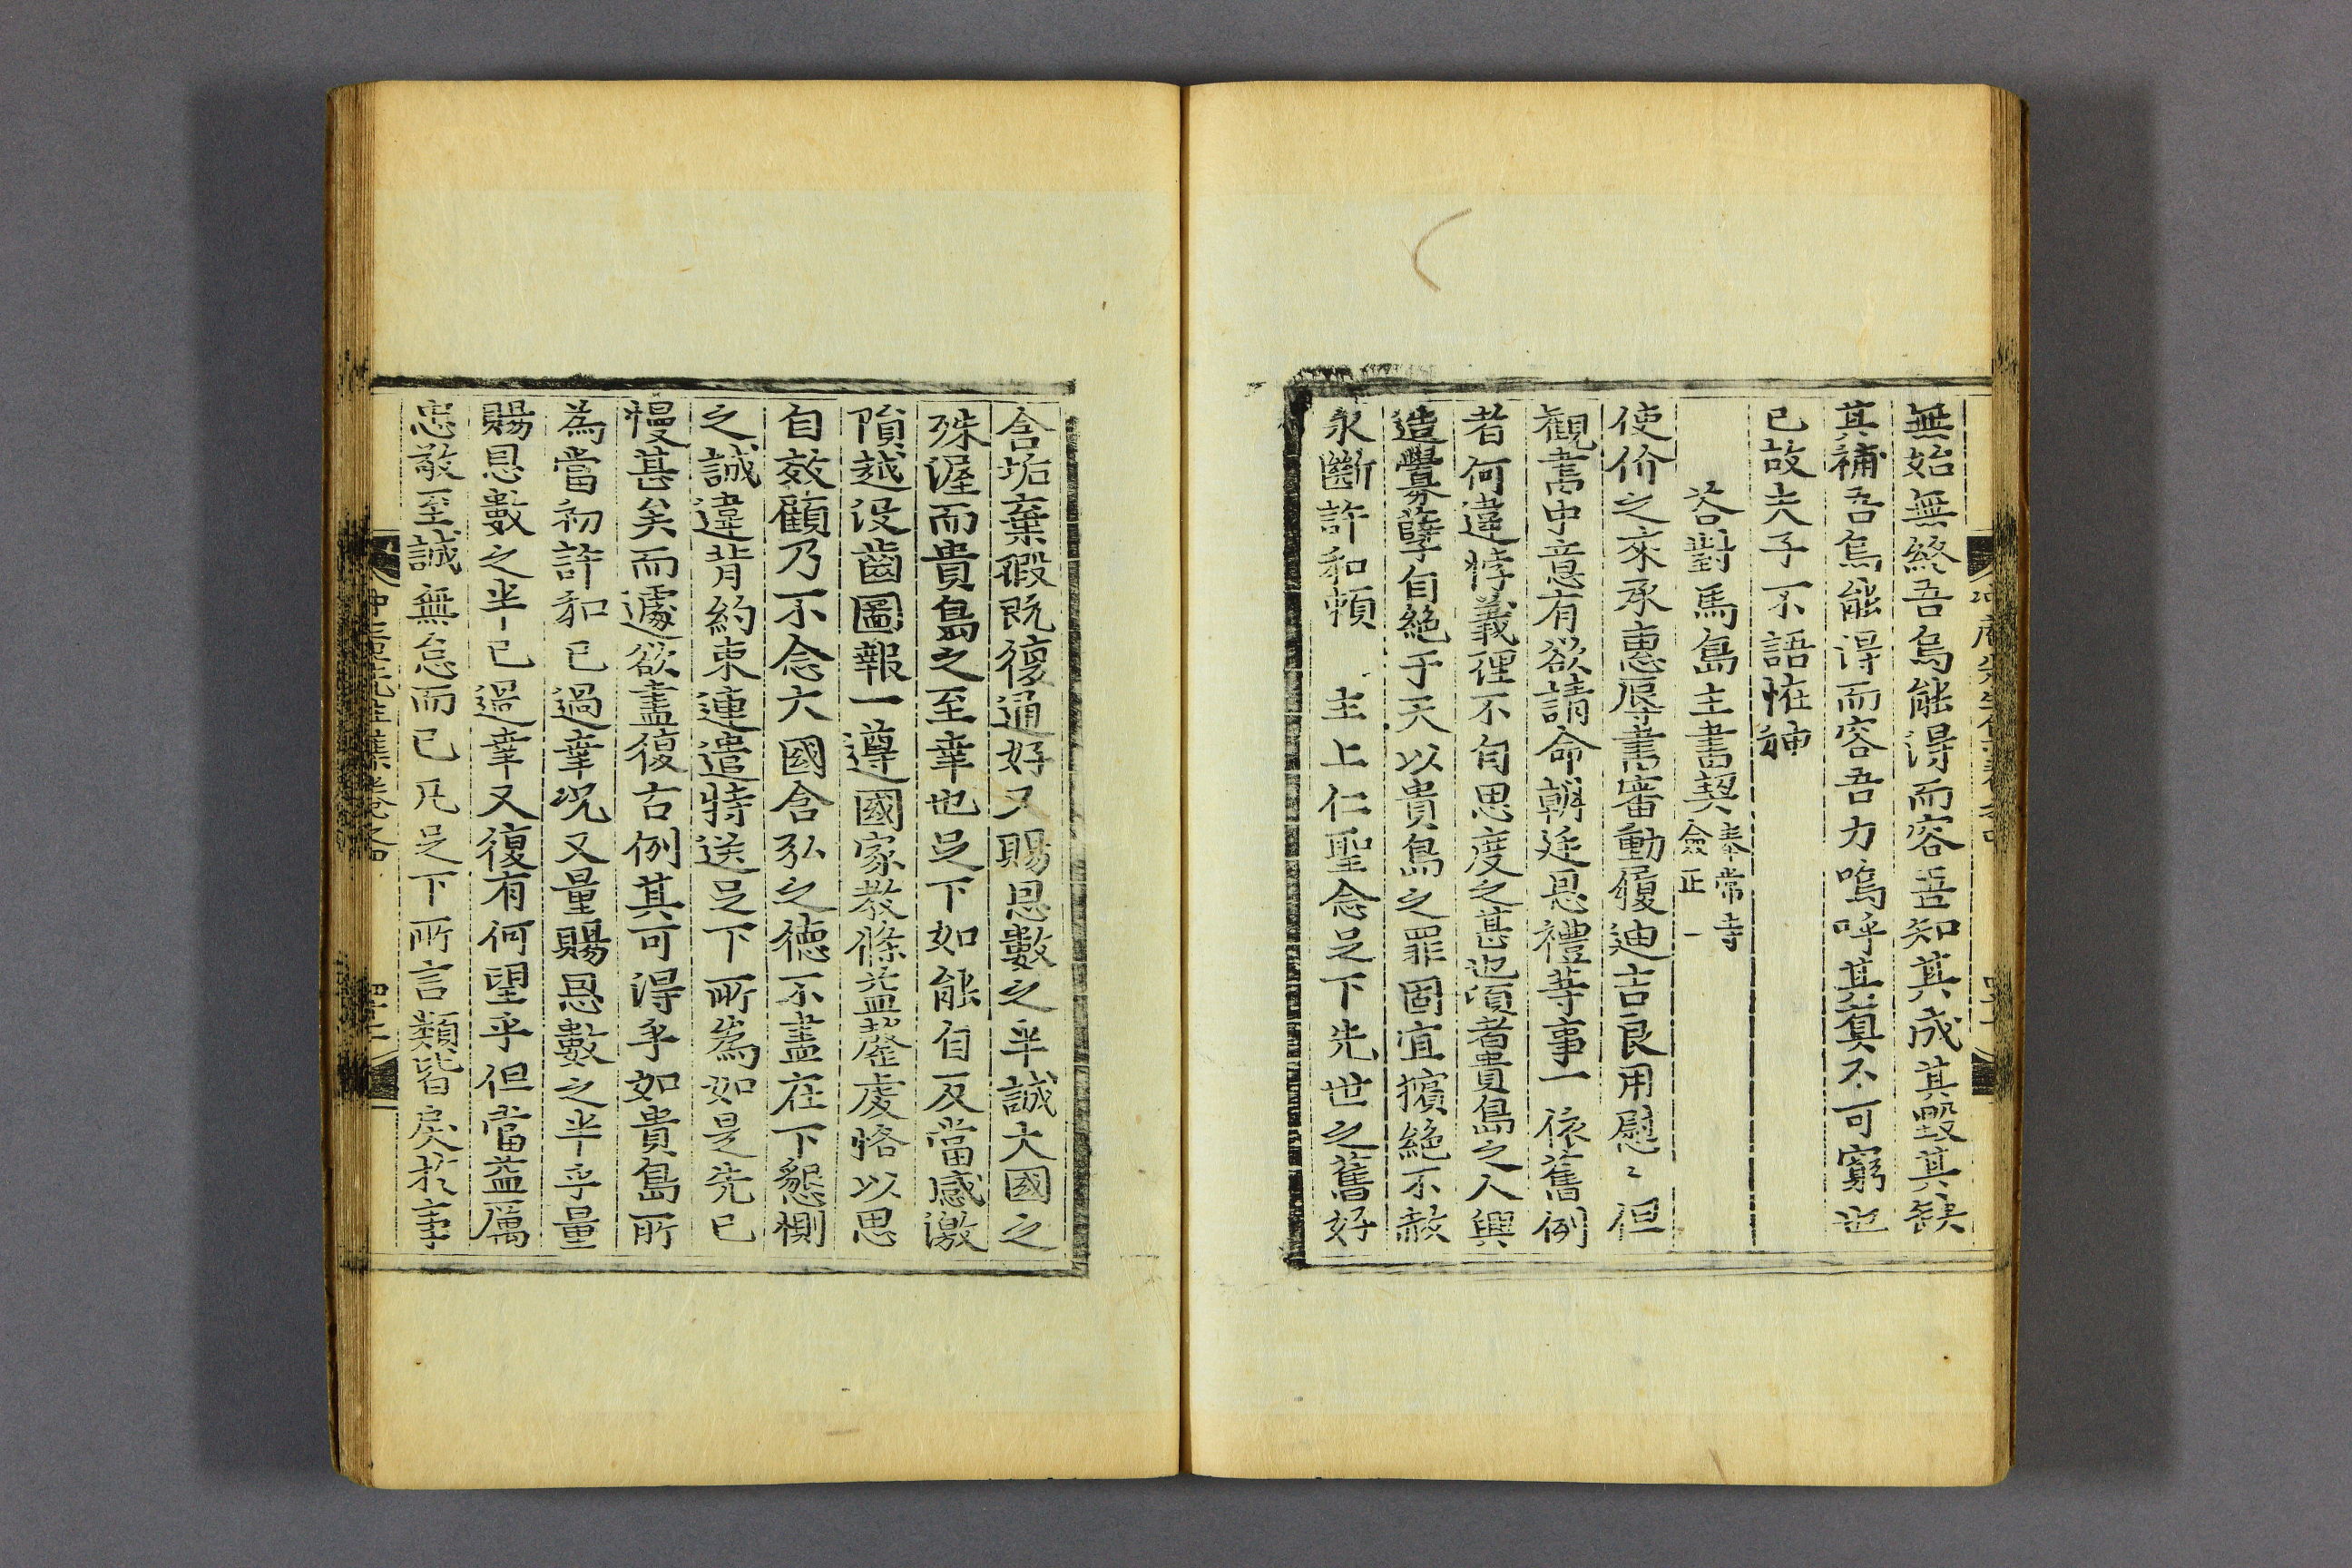 無始無終吾烏能得而容吾知其成其毀其缺
其補吾烏能得而容吾力嗚呼其冥不可窮也
已故夫子不語恠神
答對馬島主書契
奉常寺
僉正一
使价之來承惠辱書審動履迪吉良用慰〻但
觀書中意有欲請命朝廷恩禮等事一依舊例
者何違悖義理不自思度之甚也項者貴島之人興
造釁孽自絶于天以貴島之罪固宜擯絶不赦
永斷許和頼 主上仁聖念足下先世之舊好
含垢棄瑕既復通好又賜恩數之半誠大國之
殊渥而貴島之至幸也足下如能自反當感激
隕越没齒圖報一遵國家教條益虔恪以思
自效顧乃不念大國含弘之德不盡在下懇惻
之誠違背約束連遣特送足下所爲如是先已
慢甚矣而遽欲盡復古例其可得乎如貴島所
為當初許和已過幸况又量賜恩數之半乎量
賜恩數之半已過幸又復有何望乎但當益厲
忠敬至誠無怠而已凡足下所言類皆戾於事